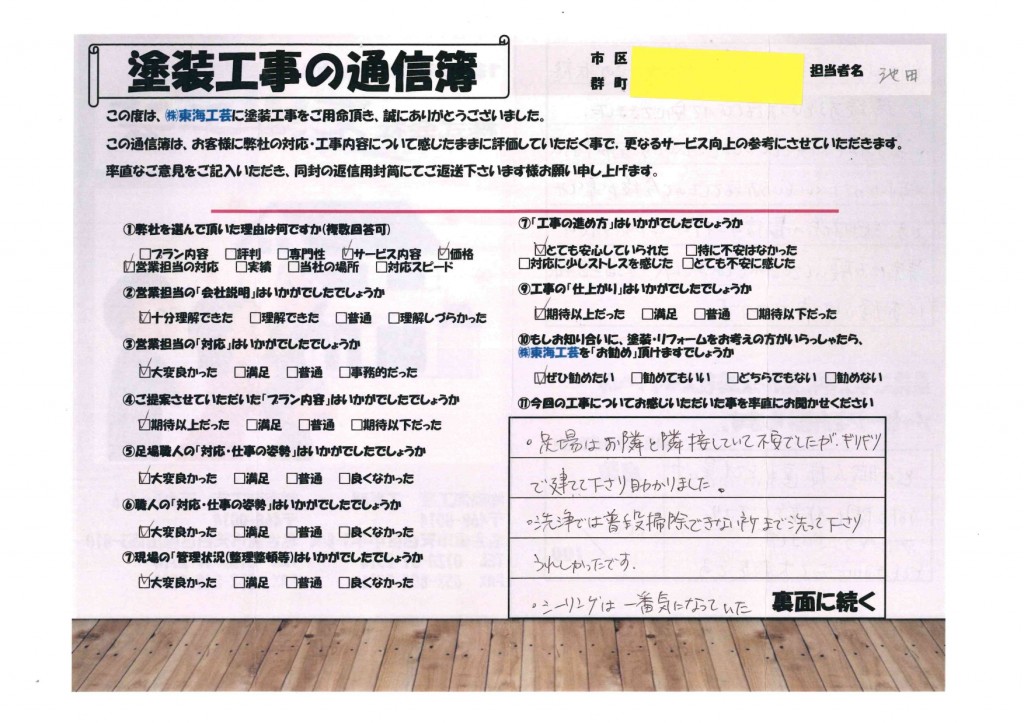 塗装工事の通信簿
市 区
群 町
担当者名 池田
この度は、㈱東海工芸に塗装工事をご用命頂き、誠にありがとうございました。
この通信簿は、お客様に弊社の対応・工事内容について感じたままに評価していただく事で、更なるサービス向上の参考にさせていただきます。
率直なご意見をご記入いただき、同封の返信用封筒にてご返送下さいます様お願い申し上げます。
①弊社を選んで頂いた理由は何ですか(複数回答可)
□プラン内容 □評判 □専門性 ☑サービス内容 ☑価格
☑営業担当の対応 □実績 □当社の場所 □対応スピード
②営業担当の「会社説明」はいかがでしたでしょうか
☑十分理解できた □理解できた □普通 □理解しづらかった
③営業担当の「対応」はいかがでしたでしょうか
☑大変良かった □満足 □普通 □事務的だった
④ご提案させていただいた「プラン内容」はいかがでしたでしょうか
☑期待以上だった □満足 □普通 □期待以下だった
⑤足場職人の「対応・仕事の姿勢」はいかがでしたでしょうか
☑大変良かった □満足 □普通 □良くなかった
⑥職人の「対応・仕事の姿勢」はいかがでしたでしょうか
☑大変良かった □満足 □普通 □良くなかった
⑦現場の「管理状況(整理整頓等)はいかがでしたでしょうか
☑大変良かった □満足 □普通 □良くなかった
⑦「工事の進め方」はいかがでしたでしょうか
☑とても安心していられた □特に不安はなかった
□対応に少しストレスを感じた □とても不安に感じた
⑨工事の「仕上がり」はいかがでしたでしょうか
☑期待以上だった □満足 □普通 □期待以下だった
⑩もしお知り合いに、塗装・リフォームをお考えの方がいらっしゃたら、
㈱東海工芸を「お勧め」頂けますでしょうか
☑ぜひ勧めたい □勧めてもいい □どちらでもない □勧めない
⑪今回の工事についてお感じいただいた事を率直にお聞かせください
・足場はお隣と隣接していて不安でしたが、ギリギリ
で建てて下さり助かりました。
・洗浄では普段掃除できない所まで洗って下さり
うれしかったです.
・シーリングは一番気になっていた
裏面に続く